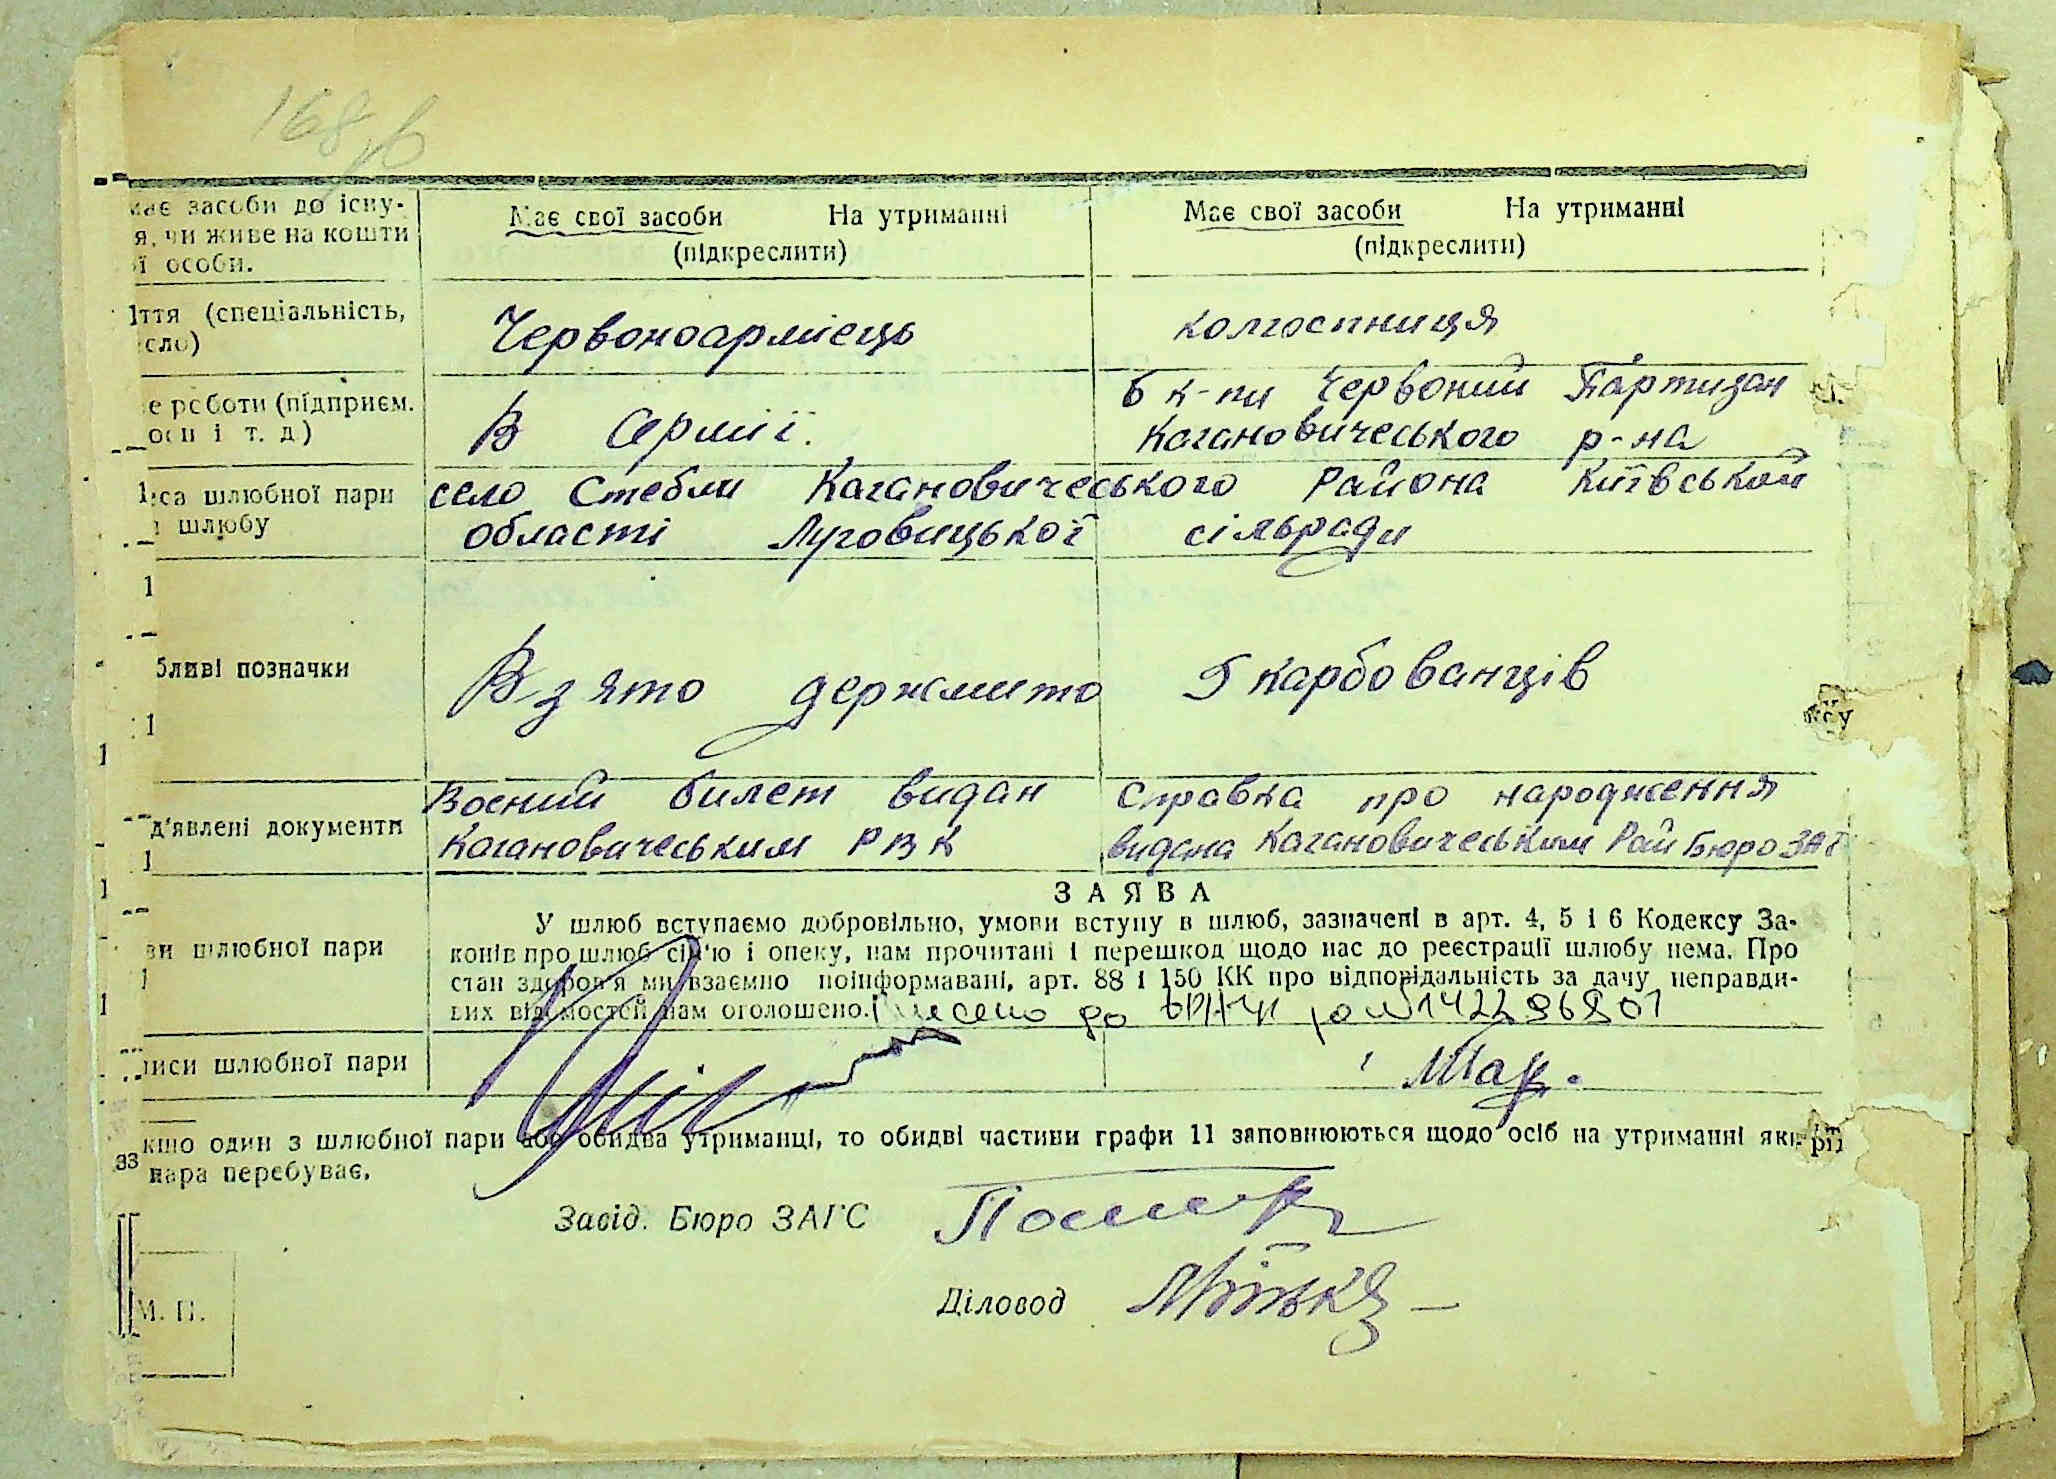 168
має засоби до існу-
я, чи живе на кошти
ї особи.
Має свої засоби На утриманні
(підкреслити)
Має свої засоби На утриманні
(підкреслити)
ття (спеціальність,
сло)
Червоноармієць
колгоспниця
е роботи (підприєм.
осп і т. д)
В Армії.
в к-пи Червоний Партизан
Кагановичеського р-на
са шлюбної пари
шлюбу
село Стебли Кагановичеського Района Київськой
області Луговицької сільради
бливі позначки
Взято держмито 5 карбованців
д'явлені документи
Воений билет видан
Кагановичеським РВК
Справка про народження
видана Кагановичеським Рай Бюро ЗАГ
ви шлюбної пари
ЗАЯВА
У шлюб вступаємо добровільно, умови вступу в шлюб, зазначені в арт. 4, 5 і 6 Кодексу За-
конів про шлюб сім'ю і опеку, нам прочитані і перешкод щодо нас до реєстрації шлюбу нема. Про
стан здоров'я ми взаємно поінформавані, арт. 88 і 150 КК про відповідальність за дачу неправди-
вих відомостей нам оголошено.
до
писи шлюбної пари
кщо один з шлюбної пари або обидва утриманці, то обидві частини графи 11 заповнюються щодо осіб на утриманні яки
33
пара перебуває.
Завід. Бюро ЗАГС
Діловод
М. П.